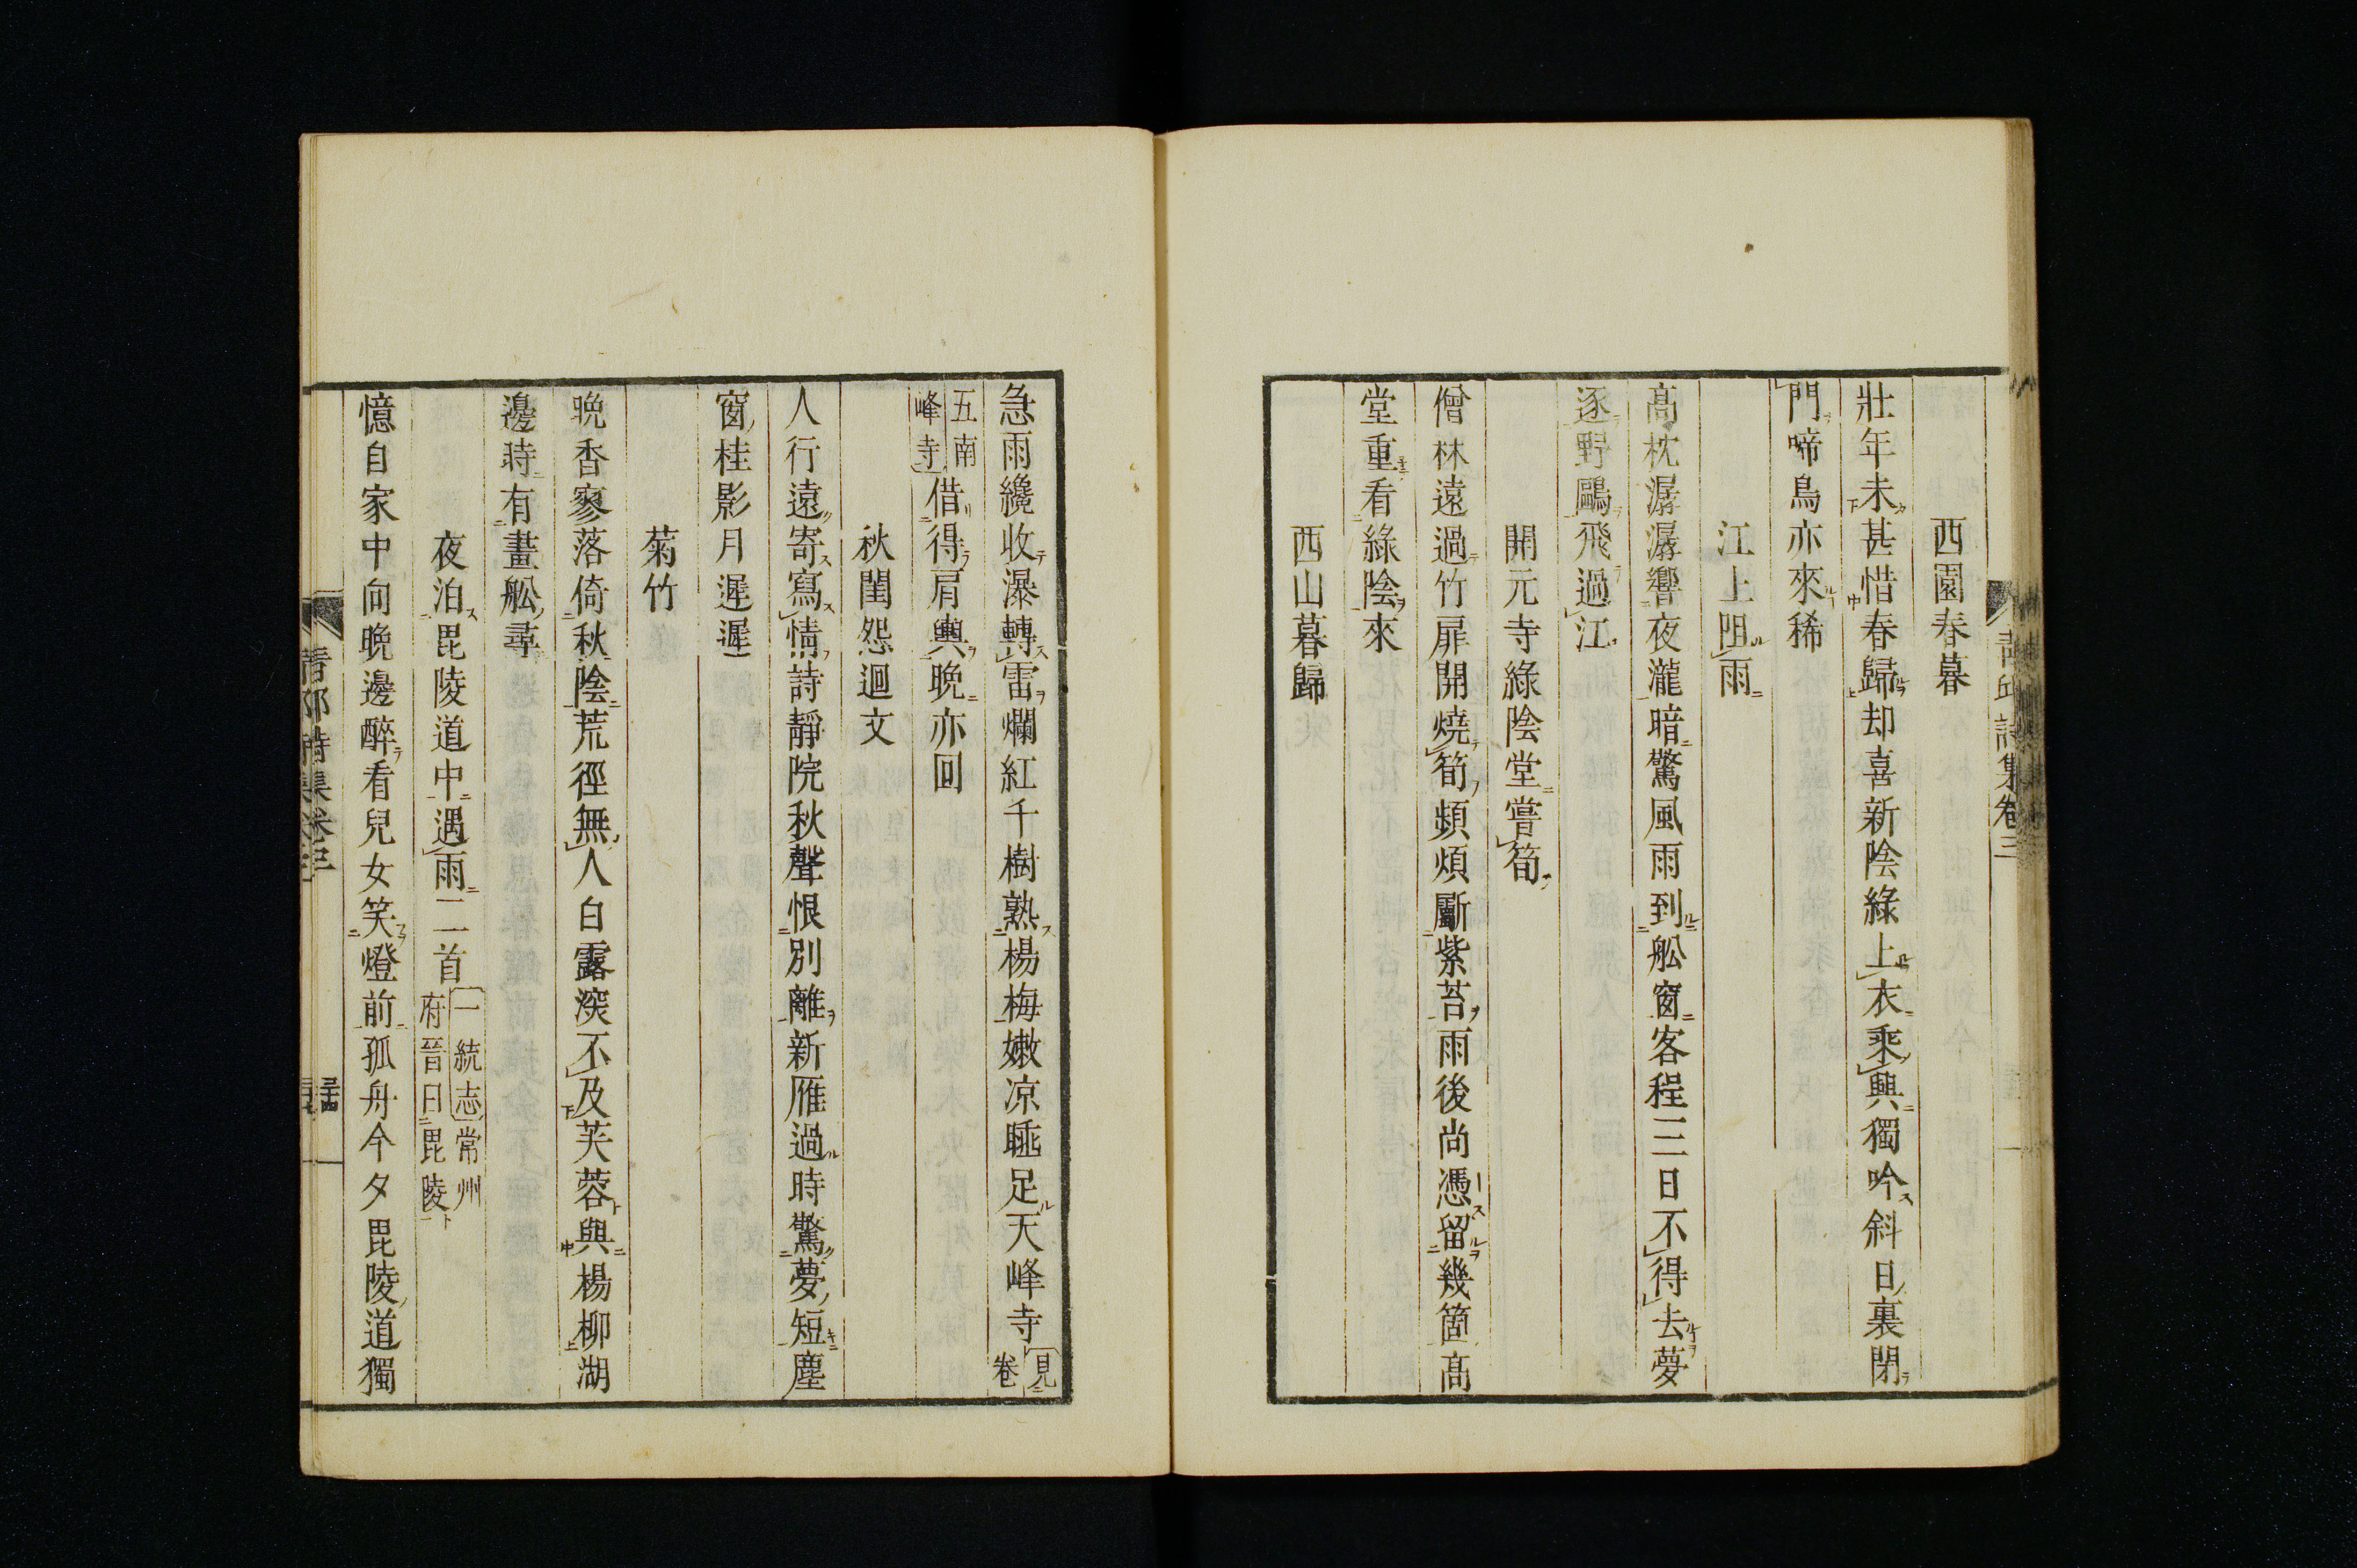 青邱詩集卷三
西園春暮
壯年未甚惜春歸却喜新陰綠上衣乘興獨吟斜日裏閉
門啼鳥亦來稀
江上阻雨
高枕潺潺響夜瀧暗驚風雨到舩窗客程三日不得去夢
逐野鷗飛過江
開元寺綠陰堂嘗筍
僧林遠過竹扉開燒筍頻煩斸紫苔雨後尚憑留幾箇高
堂重看綠陰來
西山暮歸
急雨纔收瀑轉雷爛紅千樹熟楊梅嫩凉睡足天峰寺見卷
五南峰寺借得肩輿晩亦回
秋閨怨迴文
人行遠寄寫情詩靜院秋聲恨別離新雁過時驚夢短塵
窗桂影月遲遲
菊竹
晩香寥落倚秋陰荒徑無人白露深不及芙蓉與楊柳湖
邊時有畫舩尋
夜泊毘陵道中遇雨二首一統志常州府晉曰毘陵
憶自家中向晩邊醉看兒女笑燈前孤舟今夕毘陵道獨
青邱詩集卷三